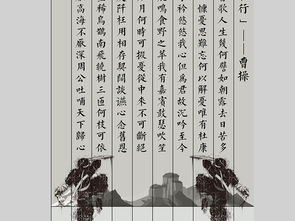 行」——曹操
歌人生幾何譬如朝露去日苦多
慷憂思難忘何以解憂唯有杜康
衿悠悠我心但為君故沉吟至今
鳴食野之苹我有嘉賓鼓瑟吹笙
月何時可掇憂從中來不可斷絕
阡枉用相存契闊談讌心念舊恩
稀烏鵲南飛繞樹三匝何枝可依
高海不厭深周公吐哺天下歸心